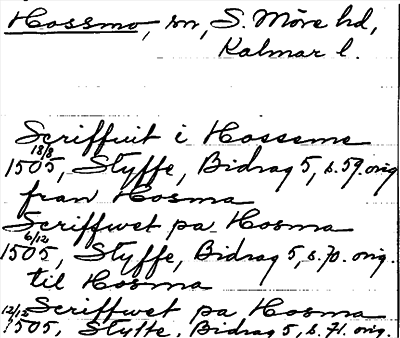 Hossmo, sn, S. Möre hd,
Kalmar l.
Scriffuit i Hosseme
18/8
1505, Styffe, Bidrag 5, s. 59. orig
fran Hosma
Scriffwet pa Hosma
6/12
1505, Styffe, Bidrag 5, s. 70. orig.
til Hosma
12/12 Scriffwet pa Hosma
1505, Styffe, Bidrag 5, s. 71. orig.